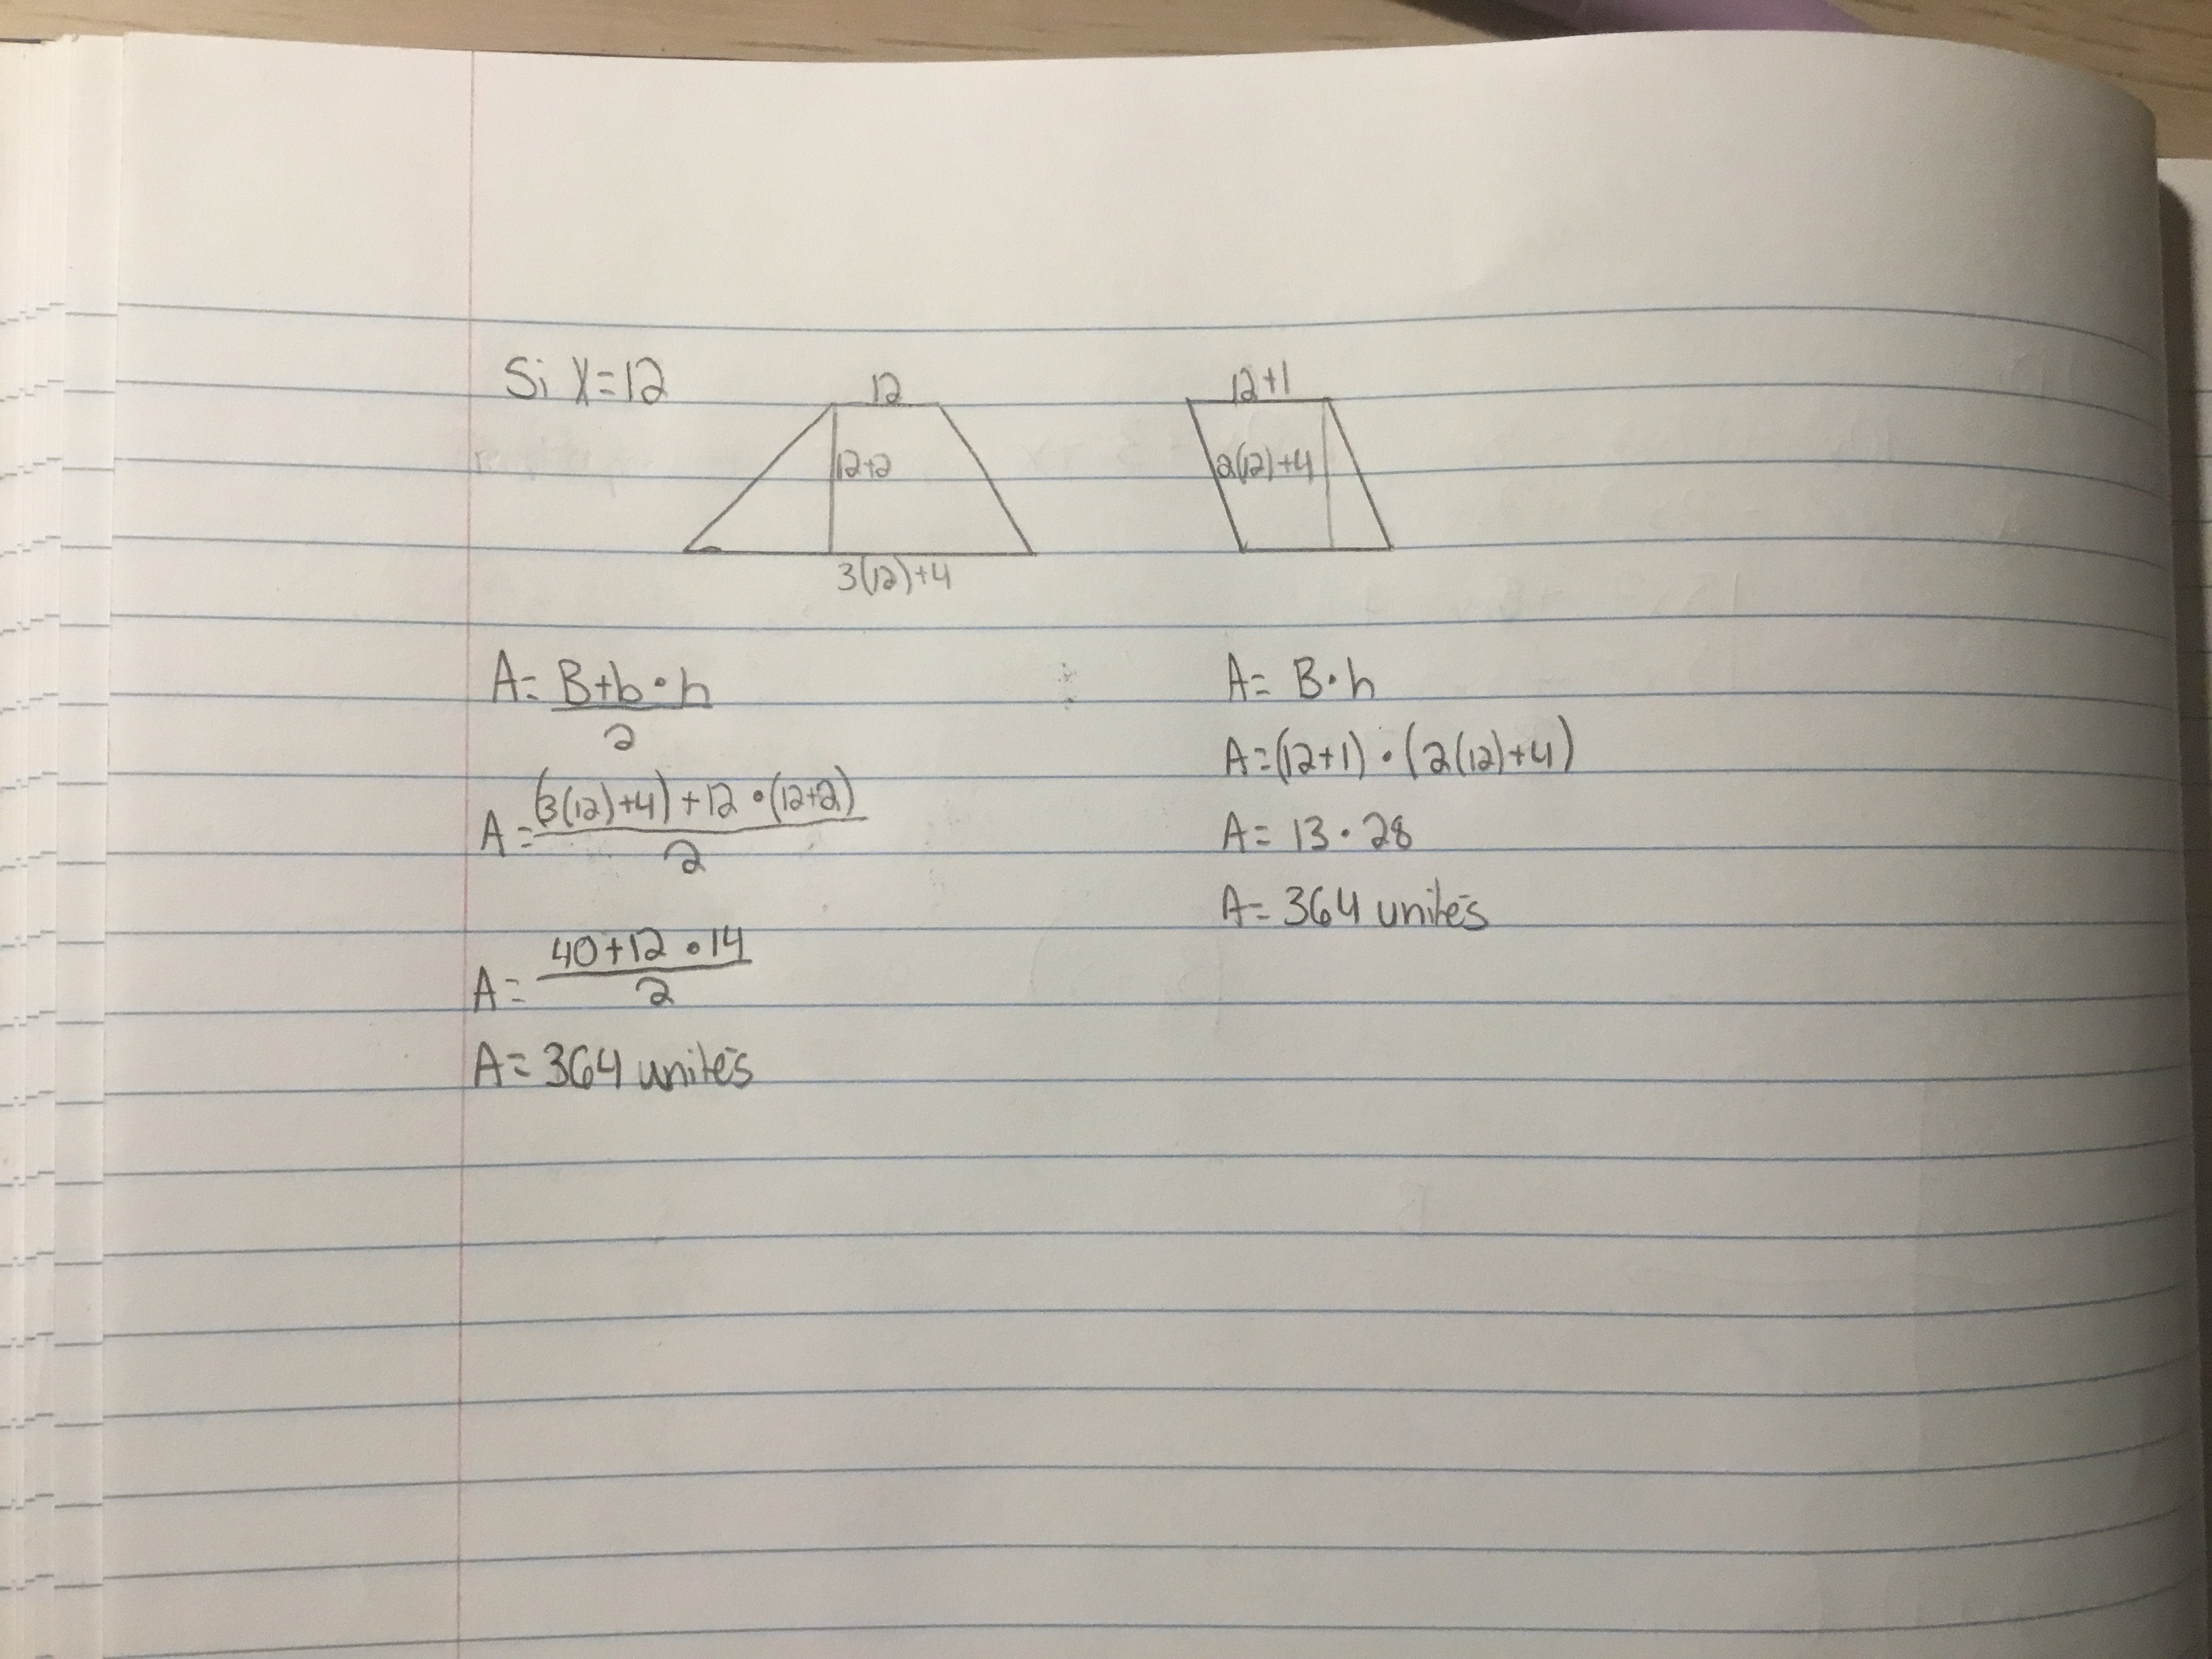 Si X=12
12
12+2
3(12)+4
12+1
2(12)+4
A= B+b•h
2
A= (3(12)+4)+12•(12+2)
2
A= 40+12•14
2
A= 364 unités
A= B•h
A=(12+1)•(2(12)+4)
A= 13•28
A= 364 unités